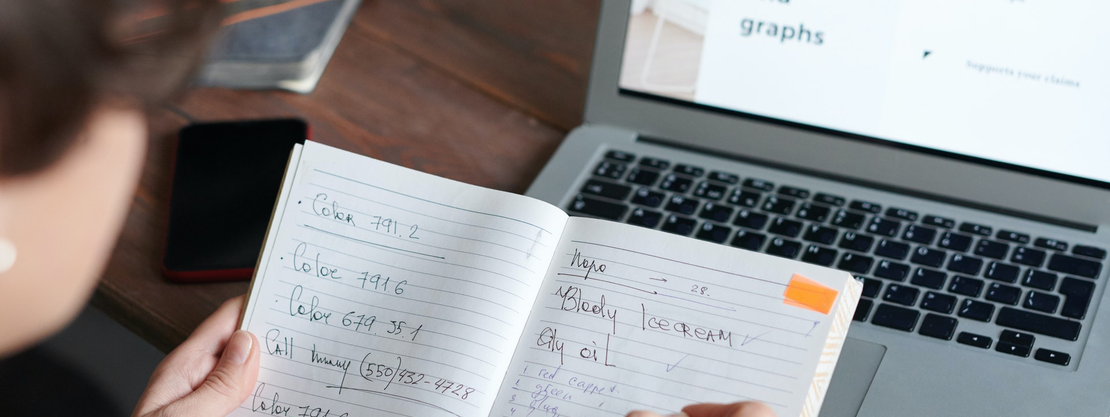 Color 791.2
Color 7916
Color 679.35.1
Call (550)432-4728
Color
28.
Bloody ICECREAM
City oil
1 red carpet.
2 green
3
4
graphs
Supports your claims